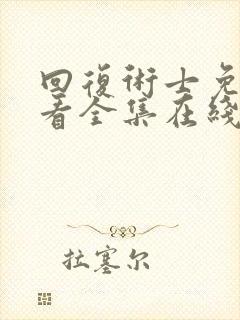 回復術士免
看全集在綫
拉塞尔